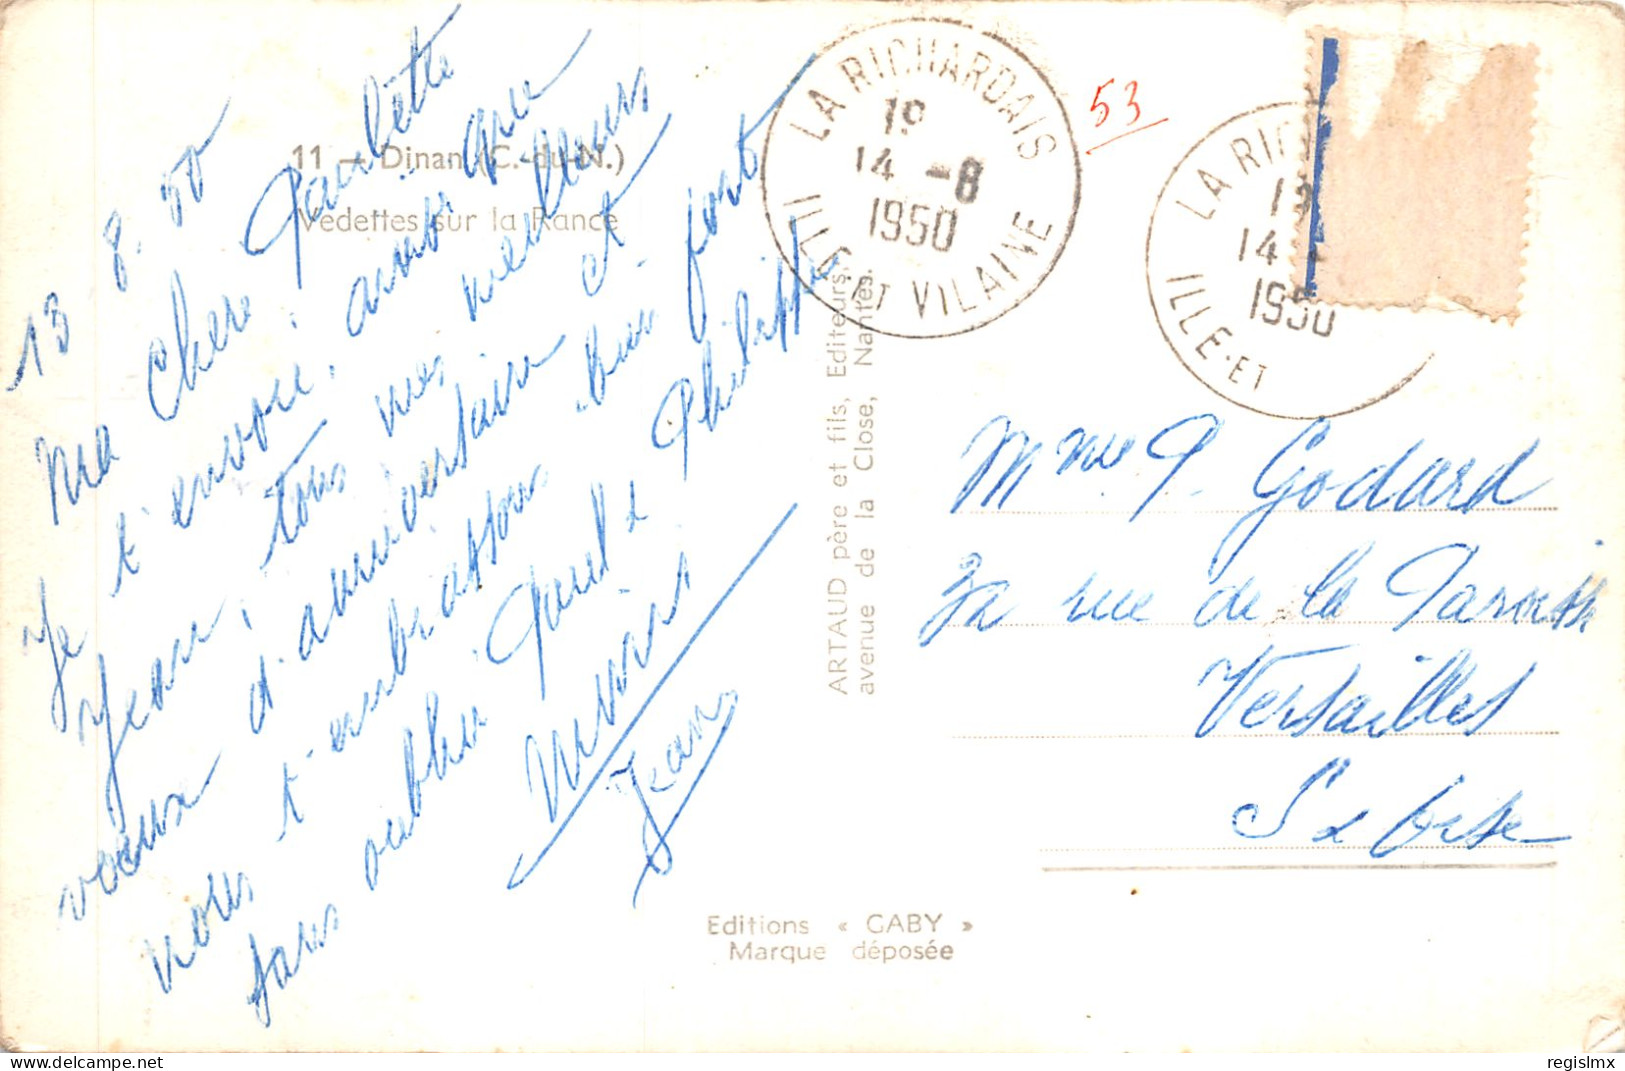 13 8. 50
Ma Chère Paulette
Je t'envoie, ainsi que
Jean, tous mes meilleurs
vœux d'anniversaire et
nous t'embrassons bien fort
sans oublier Paul & Philippe
Jean
11 — Dinan (C.-du-N.)
Vedettes sur la Rance
LA RICHARDAIS
19
14 -8
1950
ILLE-ET VILAINE
53
LA RICH
19
14
1950
ILLE-ET
ARTAUD père et fils, Editeurs,
avenue de la Close, Nantes.
Mme P. Godard
rue de la Paroisse
Versailles
S & Oise
Editions « GABY »
Marque déposée
regislmx